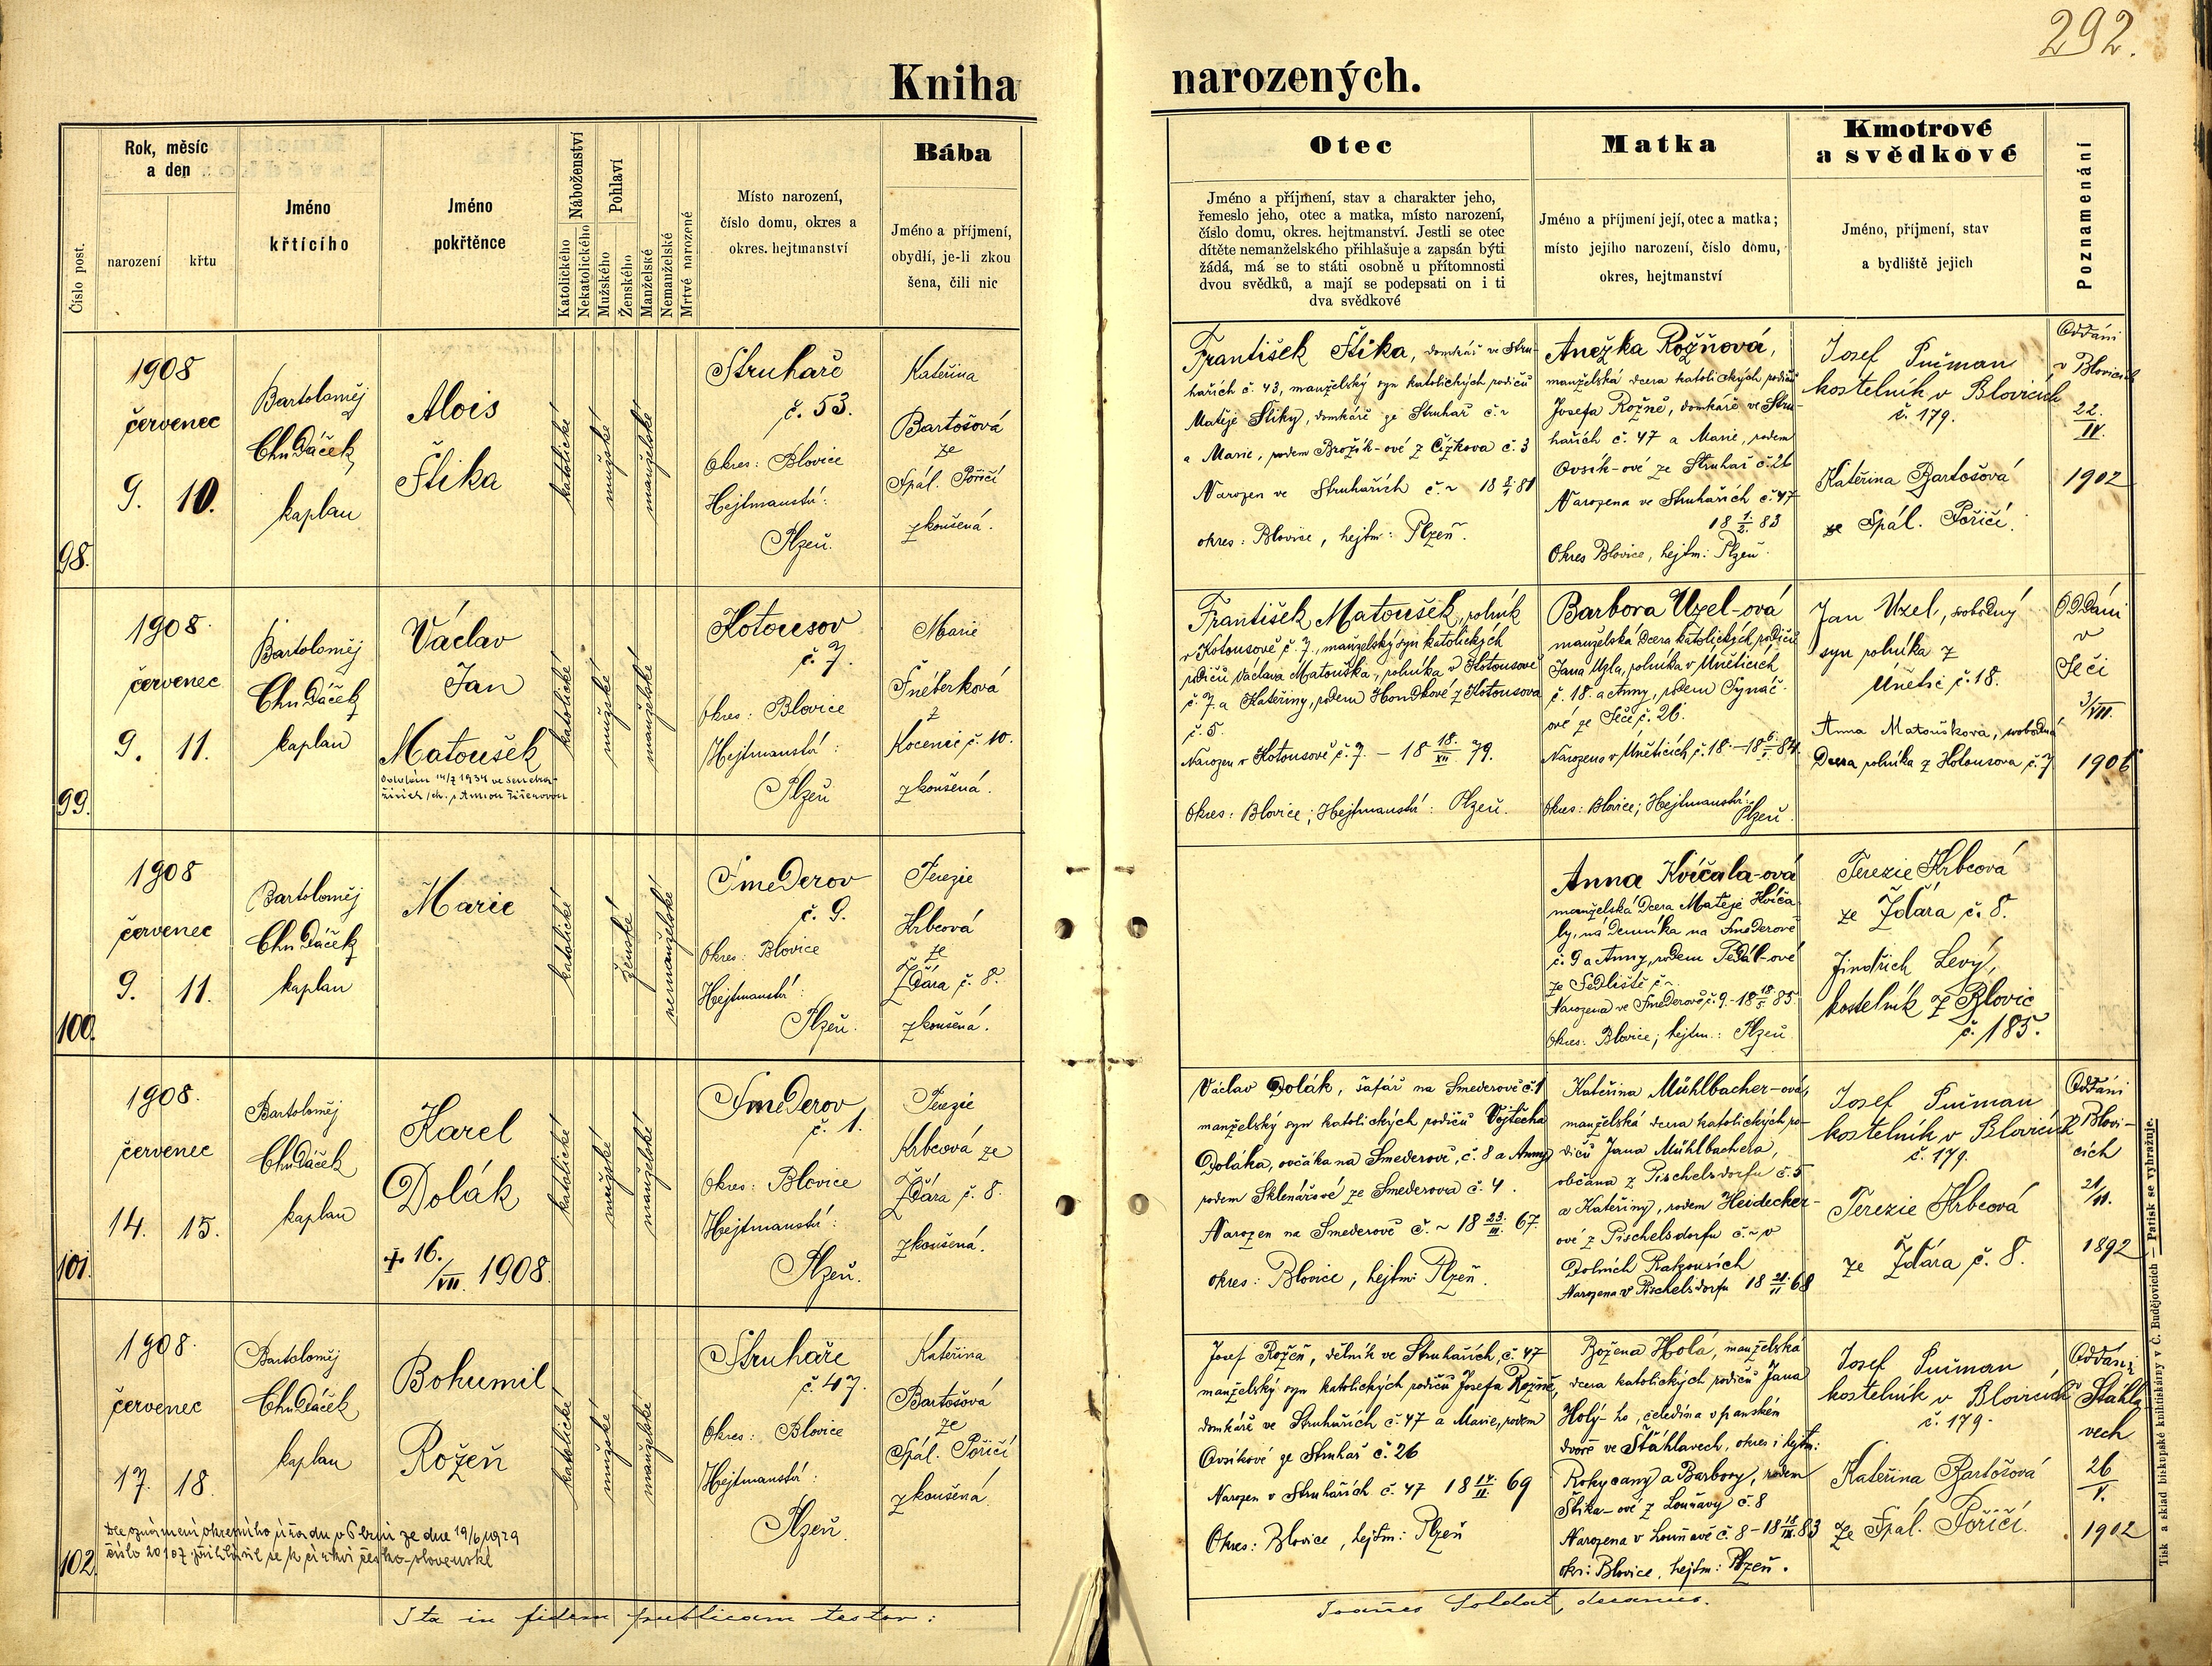 292.
Kniha narozených.
Číslo post.
Rok, měsíc
a den
narození
křtu
Jméno
křtícího
Jméno
pokřtěnce
Náboženství
Katolického
Nekatolického
Pohlaví
Mužského
Ženského
Manželské
Nemanželské
Mrtvé narozené
Místo narození,
číslo domu, okres a
okres. hejtmanství
Bába
Jméno a příjmení,
obydlí, je-li zkou
šena, čili nic
Otec
Jméno a příjmení, stav a charakter jeho,
řemeslo jeho, otec a matka, místo narození,
číslo domu, okres. hejtmanství. Jestli se otec
dítěte nemanželského přihlašuje a zapsán býti
žádá, má se to státi osobně u přítomnosti
dvou svědků, a mají se podepsati on i ti
dva svědkové
Matka
Jméno a příjmení její, otec a matka;
místo jejího narození, číslo domu,
okres, hejtmanství
Kmotrové
a svědkové
Jméno, příjmení, stav
a bydliště jejich
Poznamenání
98.
1908
červenec
9. 10.
Bartoloměj
Chudáček
kaplan
Alois
Štika
katolické
mužské
manželské
Struhaře
č. 53.
Okres: Blovice
Hejtmanství:
Plzeň.
Kateřina
Bartošová
ze
Spál. Poříčí
zkoušená.
František Štika, domkář ve Stru-
hařích č. 43, manželský syn katolických rodičů
Matěje Štiky, domkáře ze Struhař č. ~
a Marie, rodem Brožík-ové z Čížkova č. 3
Narozen ve Struhařích č. ~ 18 2/1 81
okres: Blovice, hejtm: Plzeň.
Anežka Rožňová,
manželská dcera katolických rodičů
Josefa Rožně, domkáře ve Stru-
hařích č. 47 a Marie, rodem
Ovsík-ové ze Struhař č. 26
Narozena ve Struhařích č. 47
18 1/2. 83
Okres Blovice, hejtm: Plzeň.
Josef Pučman
kostelník v Blovicích
č. 179.
Kateřina Bartošová
ze Spál. Poříčí.
Oddáni
v Blovicích
22.
IV.
1902
99.
1908.
červenec
9. 11.
Bartoloměj
Chudáček
kaplan
Václav
Jan
Matoušek
Oddán 14/7 1934
katolické
mužské
manželské
Kotousov
č. 7.
Okres: Blovice
Hejtmanství:
Plzeň
Marie
Fnéberková
z
Kocenic č. 10.
zkoušená.
František Matoušek, rolník
v Kotousově č. 7, manželský syn katolických
rodičů Václava Matouška, rolníka v Kotousově
č. 7. a Kateřiny, rodem Hondlové z Kotousova
č. 5.
Narozen v Kotousově č. 7. - 18 18./XII. 79.
Okres: Blovice; Hejtmanství: Plzeň.
Barbora Uzel-ová
manželská dcera katolických rodičů
Jana Uzla, rolníka v Únětících
č. 18. a Anny, rodem Synáč-
ové ze Sečé č. 26.
Narozena v Únětících, č. 18. - 18 6./I. 84.
Okres: Blovice; Hejtmanství:
Plzeň.
Jan Uzel, svobodný
syn rolníka z
Únětic č. 18.
Anna Matoušková, svobodná
dcera rolníka z Kotousova č. 7
Oddáni
v
Seči
3/VII.
1906
100.
1908
červenec
9. 11.
Bartoloměj
Chudáček
kaplan
Marie
katolické
ženské
nemanželské
Smederov
č. 9.
Okres: Blovice
Hejtmanství:
Plzeň.
Terezie
Krbcová
ze
Ždára č. 8.
zkoušená.
Anna Kvíčala-ová
manželská dcera Matěje Kvíča
ly, nádenníka na Smederově
č. 9 a Anny, rodem Pedál-ové
ze Sedliště č. ~.
Narozena ve Smederově, č. 9. - 18 18./5 85.
Okres: Blovice; hejtm.: Plzeň
Terezie Krbcová
ze Ždára č. 8.
Jindřich Levý,
kostelník z Blovic
č. 185.
101.
1908.
červenec
14. 15.
Bartoloměj
Chudáček
kaplan
Karel
Dolák
† 16./VII. 1908.
katolické
mužské
manželské
Smederov
č. 1.
Okres: Blovice
Hejtmanství:
Plzeň.
Terezie
Krbcová ze
Ždára č. 8.
zkoušená.
Václav Dolák, šafář na Smederově č. 1
manželský syn katolických rodičů Vojtěcha
Doláka, ovčáka na Smederově, č. 8 a Anny
rodem Sklenářové ze Smederova č. 4.
Narozen na Smederově č. ~ 18 23./III. 67.
okres: Blovice, hejtm: Plzeň.
Kateřina Mühlbacher-ová,
manželská dcera katolických ro-
dičů Jana Mühlbachera,
občana z Pischelsdorfu č. 5
a Kateřiny, rodem Heidecker-
ové z Pischelsdorfu č. ~ v
Dolních Rakousích
Narozena v Pischelsdorfu 18 21./II 68
Josef Pučman
kostelník v Blovicích
č. 179.
Terezie Krbcová
ze Ždára č. 8.
Oddáni
v Blovi-
cích
21/II.
1892
102.
1908.
červenec
17. 18.
Bartoloměj
Chudáček
kaplan
Bohumil
Rožeň
Dle oznámení okresního úřadu v Plzni ze dne 19/6 1929
číslo 20107 přihlásil se k církvi česko-slovenské
katolické
mužské
manželské
Struhaře
č. 47.
Okres: Blovice
Hejtmanství:
Plzeň.
Kateřina
Bartošová
ze
Spál. Poříčí
zkoušená.
Josef Rožeň, dělník ve Struhařích, č. 47
manželský syn katolických rodičů Josefa Rožně,
domkáře ve Struhařích č. 47 a Marie, rodem
Ovsíkové ze Struhař č. 26
Narozen v Struhařích č. 47 18 14./II. 69
Okres: Blovice, hejtm: Plzeň
Božena Holá, manželská
dcera katolických rodičů Jana
Holý-ho, čeledína v panském
dvoře ve Stáhlavech, okres i hejtm:
Rokycany a Barbory, rodem
Štika-ové z Louňavy č. 8
Narozena v Louňavě č. 8 - 18 18/IX. 83
okr: Blovice, hejtm: Plzeň.
Josef Pučman
kostelník v Blovicích
č. 179.
Kateřina Bartošová
ze Spál. Poříčí.
Oddáni
v Stáhla
vech
26
V.
1902
Ita in fidem publicam testor:
Joannes Soldat, decanus.
Tisk a sklad biskupské knihtiskárny v Č. Budějovicích — Patisk se vyhražuje.